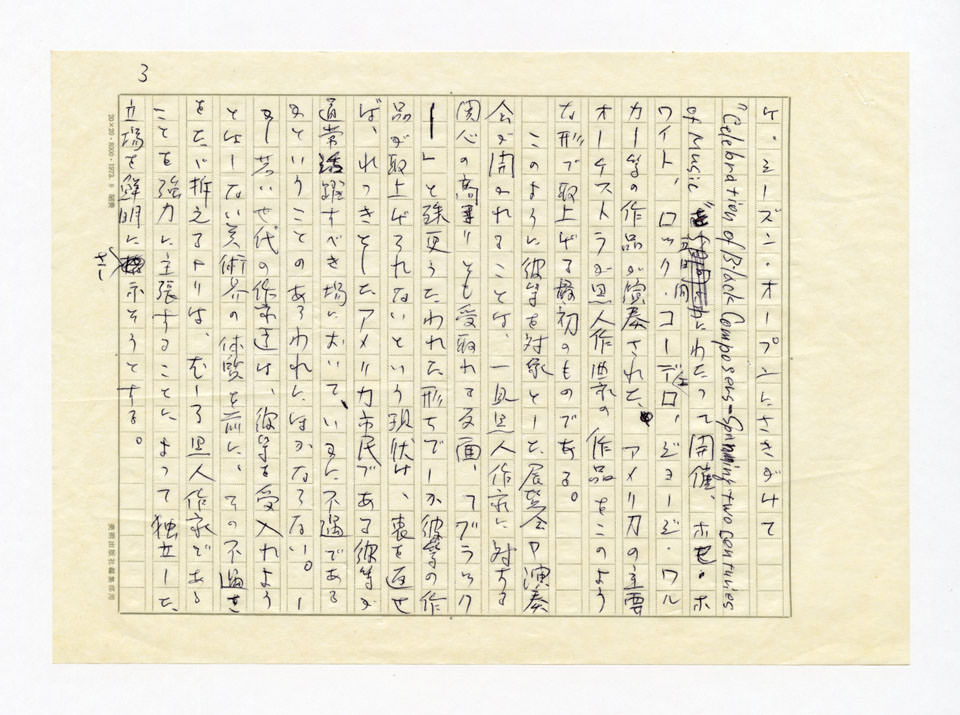 3
ケ・シーズン・オープンにさきがけて
"Celebration of Black Composers=Spanning two centuries
of Music"が五日間にわたって開催、ホセ・ホ
ワイト、ロック・コーデロ、ジョージ・ワル
カー等の作品が演奏された。アメリカの主要
オーケストラが黒人作曲家の作品をこのよう
な形で取上げる最初のものである。
このように彼等を対象とした展覧会や演奏
会が開かれることは、一見黒人作家に対する
関心の高まりとも受取れる反面、「ブラック
ー」と殊更うたわれた形ちでしか彼等の作
品が取上げられないという現状は、裏を返せ
ば、れっきとしたアメリカ市民である彼等が
通常活躍すべき場において、いまだ不遇である
ということのあらわれにほかならない。し
かし若い世代の作家達は、彼等を受入れよう
としない美術界の体質を前に、その不遇を
ただ訴えるよりは、むしろ黒人作家である
ことを強力に主張することによって独立した
立場を鮮明に示そうとする。
さし
20×20・8000・1973.
美術出版社編集部用